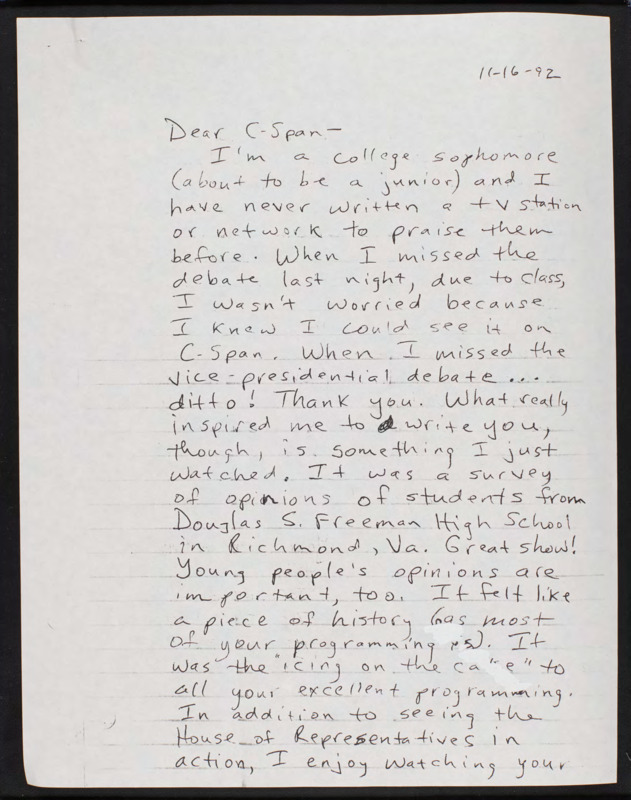 11-16-92
Dear C-Span-
I'm a college sophomore
(about to be a junior) and I
have never written a tv station
or network to praise them
before. When I missed the
debate last night, due to class,
I wasn't worried because
I knew I could see it on
C-Span. When I missed the
vice-presidential debate...
ditto! Thank you. What really
inspired me to write you,
though, is something I just
watched. It was a survey
of opinions of students from
Douglas S. Freeman High School
in Richmond, Va. Great show!
Young people's opinions are
important, too. It felt like
a piece of history (as most
of your programming is). It
was the "icing on the ca e" to
all your excellent programming.
In addition to seeing the
House of Representatives in
action, I enjoy watching your